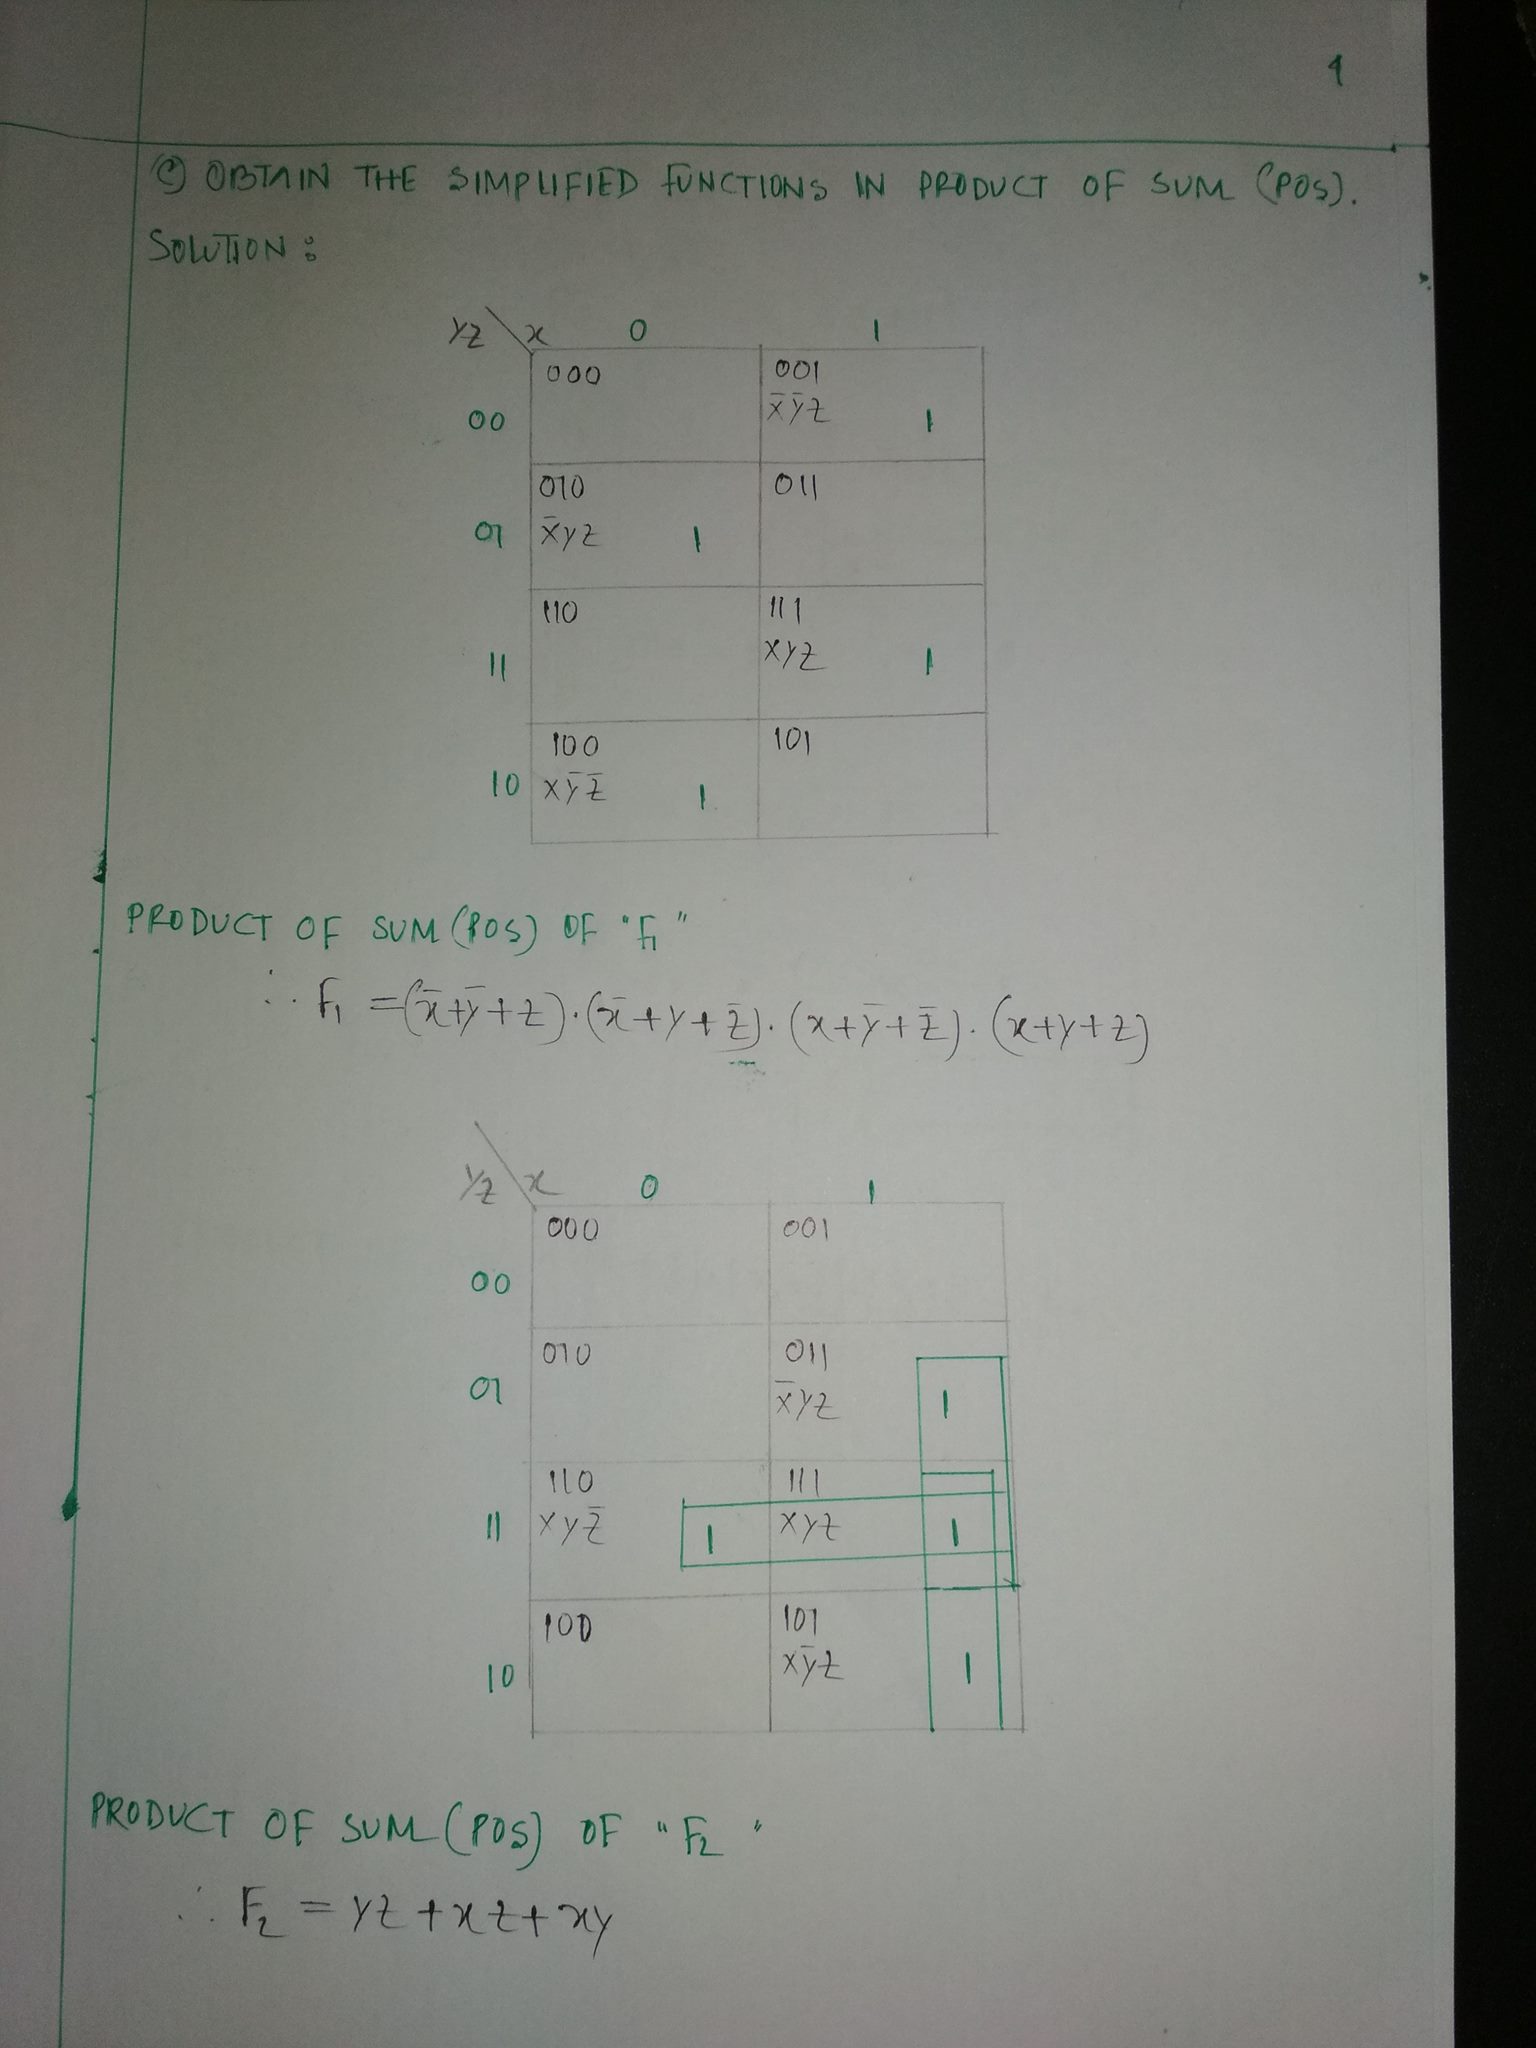 1
(C) OBTAIN THE SIMPLIFIED FUNCTIONS IN PRODUCT OF SUM (POS).
SOLUTION :
YZ \ x 0 1
000 001
00 x̄ȳz 1
010 011
01 x̄yz 1
110 111
11 xyz 1
100 101
10 xȳz̄ 1
PRODUCT OF SUM (POS) OF "F1"
∴ F₁ =(x̄+ȳ+z).(x̄+y+z̄).(x+ȳ+z̄).(x+y+z)
YZ \ x 0 1
000 001
00
010 011
01 x̄yz 1
110 111
11 xyz̄ 1 xyz 1
100 101
10 xȳz 1
PRODUCT OF SUM (POS) OF "F₂"
∴ F₂ = yz+xz+xy